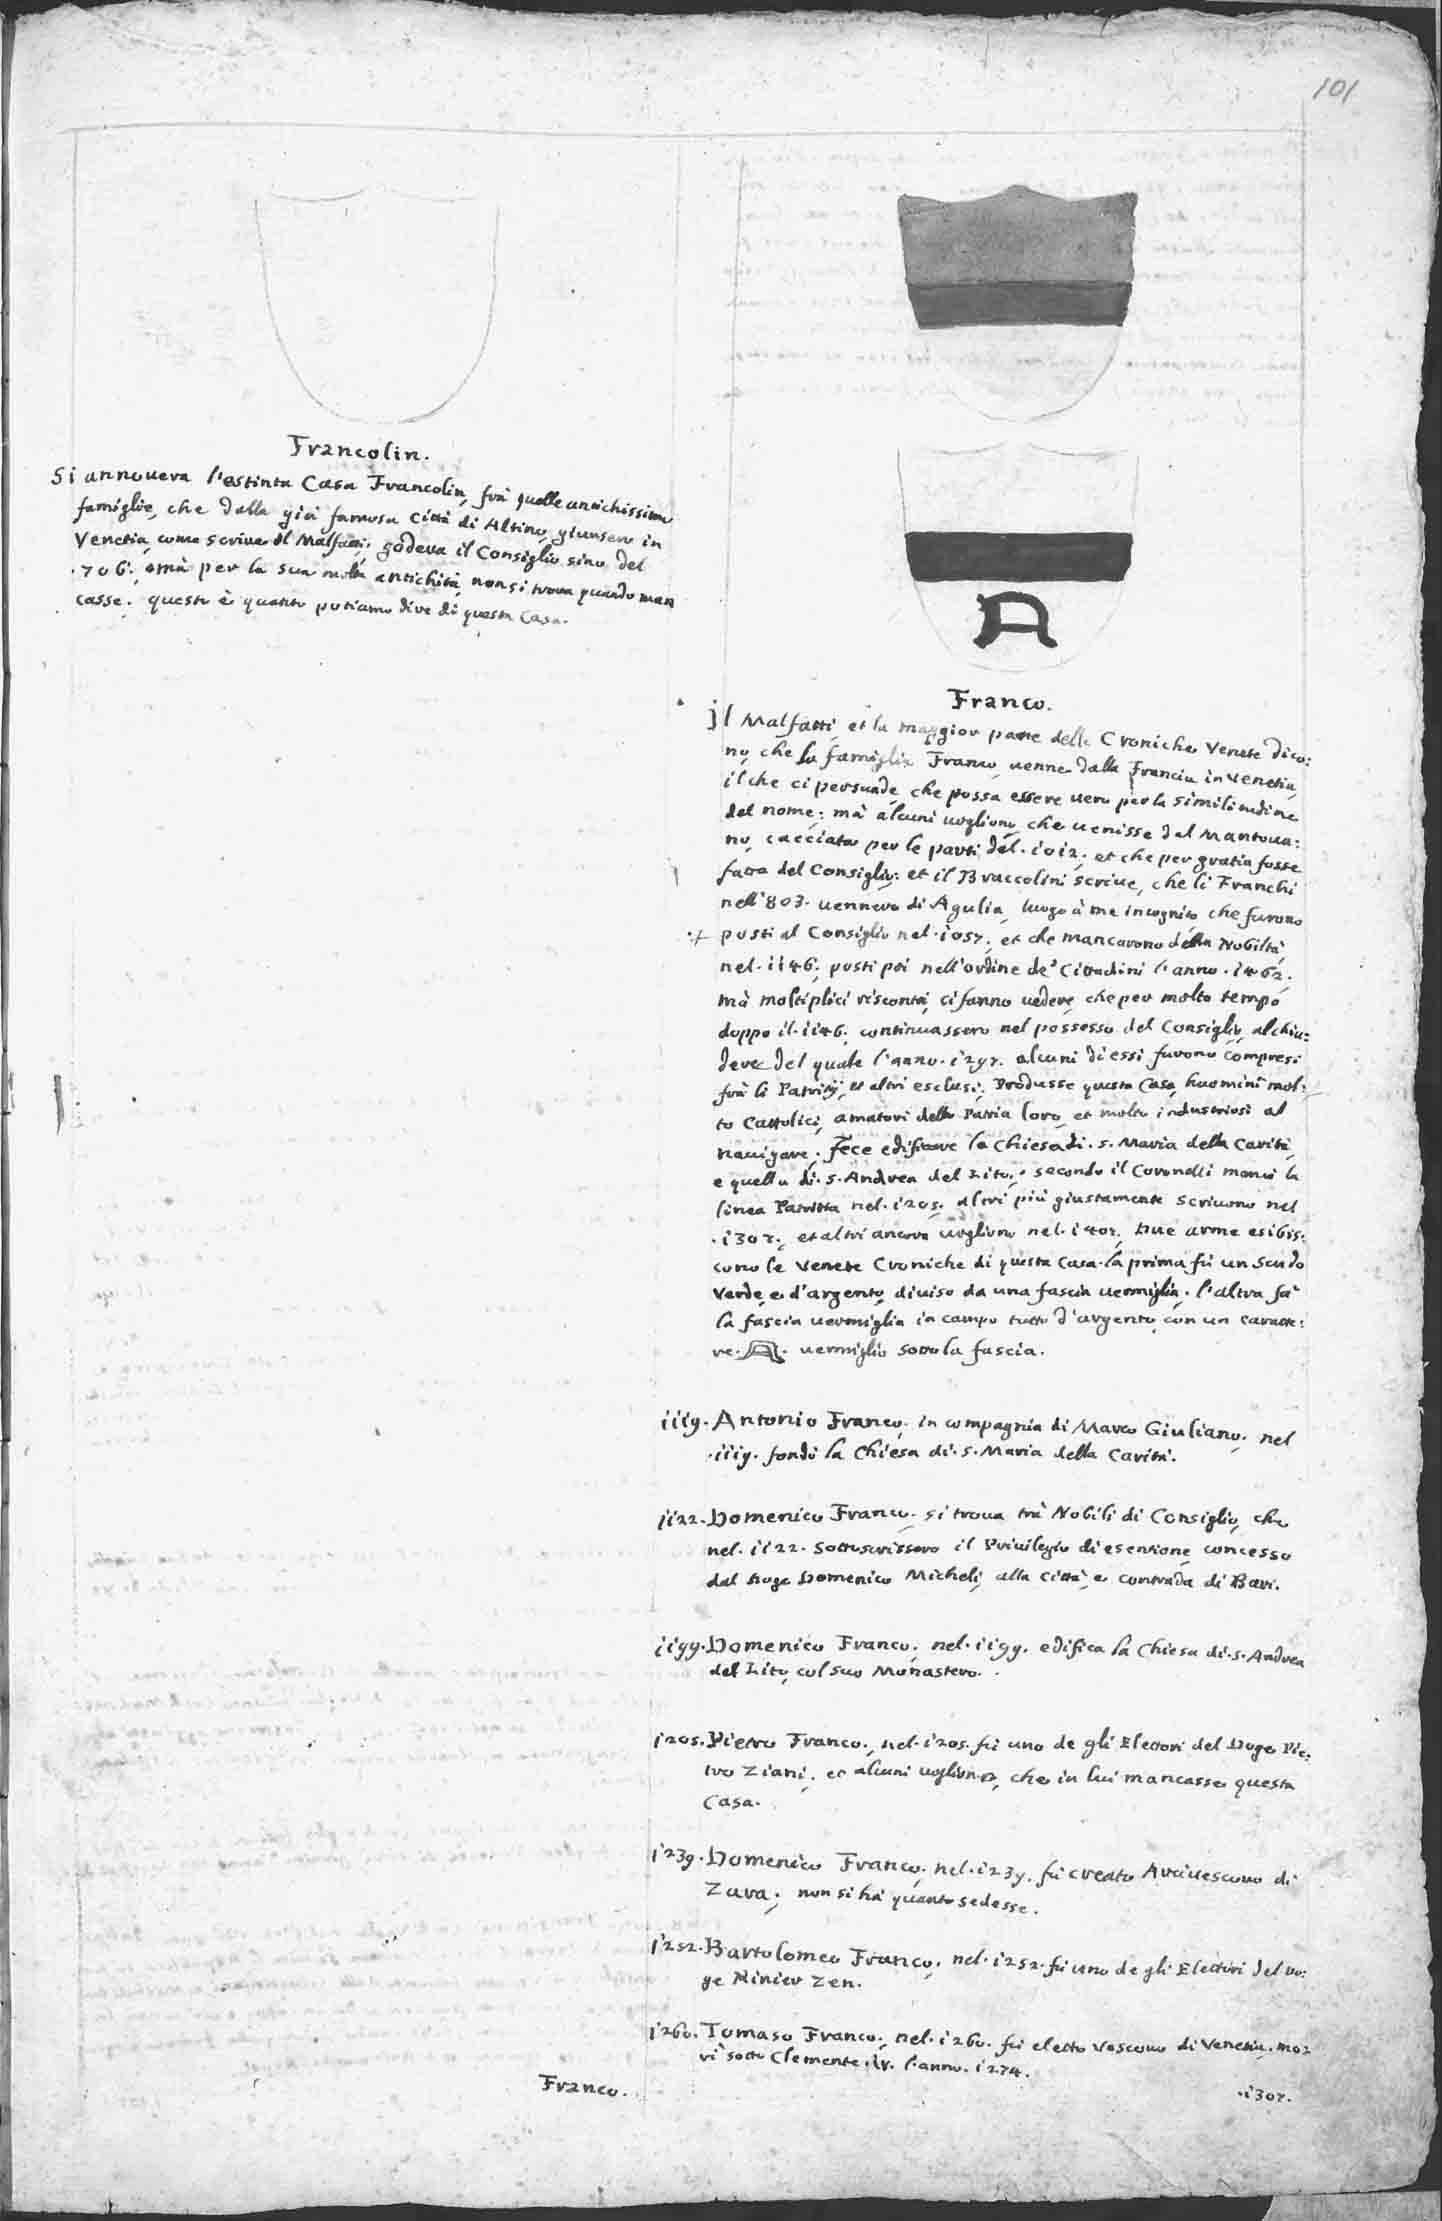 101
Francolin.
Si annovera l'estinta Casa Francolin, frà quelle antichissime
famiglie, che dalla già famosa Città di Altino, giunsero in
Venetia, come scrive il Malfatti; godeva il Consiglio sino del
.706., mà per la sua molta antichità, non si trova quando man
casse. questo è quanto potiamo dire di questa Casa.
Franco.
jl Malfatti, et la maggior parte delle Croniche Venete dico:
no, che la famiglia Franco, venne dalla Francia in Venetia,
il che ci persuade, che possa essere vero per la similitudine
del nome; mà alcuni vogliono, che venisse dal Mantova:
no, cacciata per le parti del .1012. et che per gratia fosse
fatta del Consiglio: et il Braccolini scrive, che li Franchi
nell'803. vennero di Agulia, luogo à me incognito che furono
posti al Consiglio nel .1057., et che mancarono della Nobiltà
nel .1146., posti poi nell'ordine de' Cittadini l'anno .1462.
mà moltiplici riscontri, ci fanno vedere, che per molto tempo
doppo il .1146. continuassero nel possesso del Consiglio, al chiu:
dere del quale l'anno .1297. alcuni di essi furono compresi
frà li Patritij, et altri esclusi. Produsse questa Casa, huomini mol:
to Cattolici, amatori della Patria loro, et molto industriosi al
navigare. Fece edificare la Chiesa di .S. Maria della Carità,
e quella di .S. Andrea del Lito. secondo il Coronelli mancò la
linea Patritia nel .1205. altri più giustamente scrivono nel
.1307., et altri ancora vogliono nel .1407. Due arme esibis:
cono le Venete Croniche di questa Casa. la prima fù un Scudo
Verde, e d'argento, diviso da una fascia vermiglia. l'altra fà
la fascia vermiglia in campo tutto d'argento, con un caratte:
re .A. vermiglio sotto la fascia.
1119. Antonio Franco, in compagnia di Marco Giuliano, nel
.1119. fondò la Chiesa di .S. Maria della Carità.
1122. Domenico Franco, si trova trà Nobili di Consiglio, che
nel .1122. sottoscrissero il Privilegio di esentione, concesso
dal Doge Domenico Micheli, alla città, e contrada di Bari.
1199. Domenico Franco, nel .1199. edifica la Chiesa di .S. Andrea
del Lito, col suo Monastero.
1205. Pietro Franco, nel .1205. fù uno de gli Elettori del Doge Pie:
tro Ziani, et alcuni vogliono, che in lui mancasse questa
Casa.
1239. Domenico Franco, nel .1239. fù creato Arcivescovo di
Zara; non si hà quanto sedesse.
1252. Bartolomeo Franco, nel .1252. fù uno de gli Elettori del Do:
ge Rinier Zen.
1260. Tomaso Franco, nel .1260. fù eletto Vescovo di Venetia. mo:
rì sotto Clemente .iv. l'anno .1274.
Franco.
.1307.